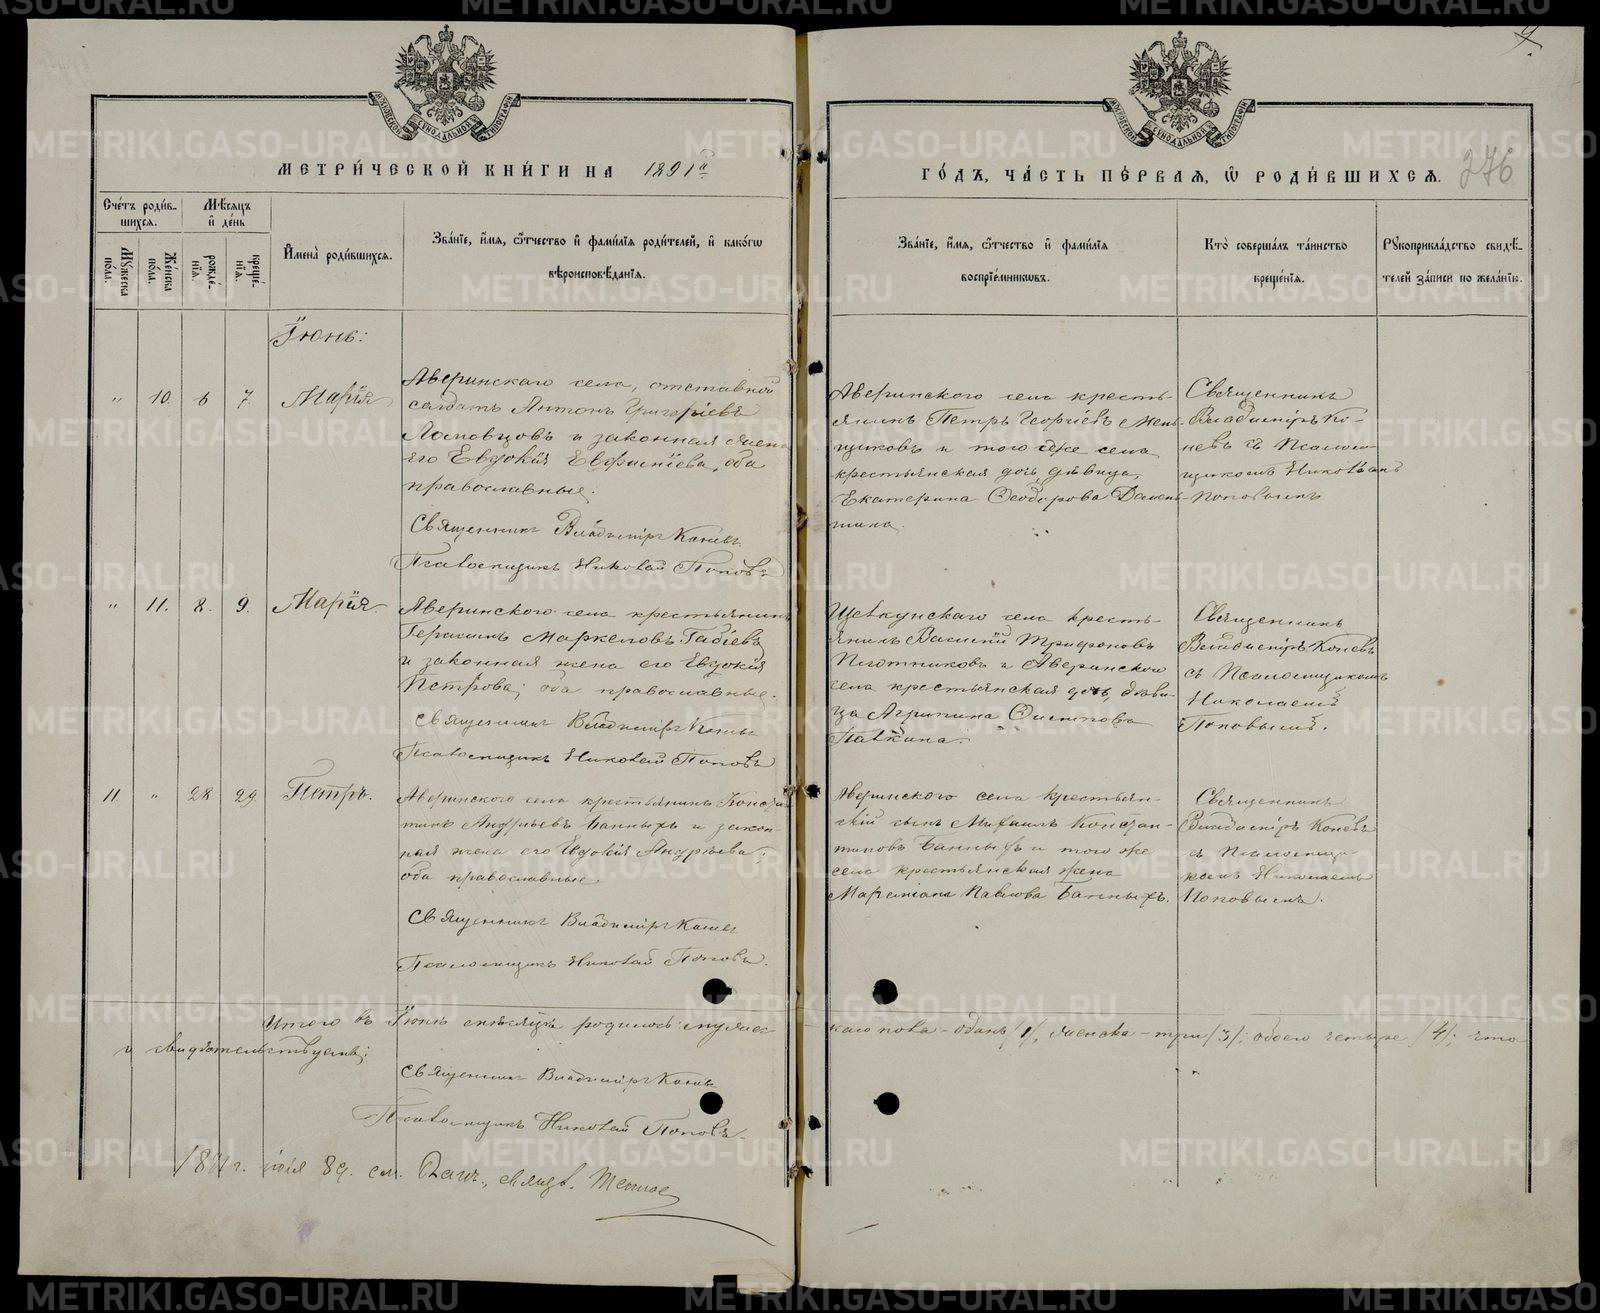 МЕТРИ́ЧЕСКОЙ КНИ́ГИ НА 1891й
ГО́ДЪ, ЧА́СТЬ ПЕ́РВАЯ, Ѡ РОДИ́ВШИХСЯ. 276
Сче́тъ роди́вшихся.
Мѣсяцъ и де́нь
Мужеска по́ла.
Же́нска по́ла.
рожде́нія.
креще́нія.
Имена̀ роди́вшихся.
Зва́нїе, и́мя, ѻ́тчество и фами́лїя роди́телей, и како́гѡ
вѣроисповѣ́данїя.
Зва́нїе, и́мя, ѻ́тчество и фами́лїя
воспрїе́мникѡвъ.
Кто̀ соверша́лъ та́инство
креще́нїя.
Рукоприкла́дство свидѣ́-
телей за́писи по жела́нїю.
Іюнь:
" 10. 6 7. Марія
Аверинскаго села, отставной
солдатъ Антонъ Григоріевъ
Ломовцовъ и законная жена
его Евдокія Евфиміева, оба
православные.
Священникъ Владиміръ Коневъ
Псаломщикъ Николай Поповъ
Аверинского села кресть-
янинъ Петръ Георгіевъ Мень-
щиковъ и того же села
крестьянская дочь девица,
Екатерина Ѳеодорова
Священникъ
Владиміръ Ко-
невъ съ Псалом-
щикомъ Николаемъ
Поповымъ
" 11. 8. 9. Марія
Аверинского села крестьянинъ
Герасимъ Маркеловъ
и законная жена его Евдокія
Петрова; оба православные.
Священникъ Владиміръ Коневъ
Псаломщикъ Николай Поповъ
Щелкунскаго села кресть-
янинъ Василій Трифоновъ
Плотниковъ и Аверинского
села крестьянская дочь, деви-
ца Агрипина Осипова
Палкина.
Священникъ
Владиміръ Коневъ
съ Псаломщикомъ
Николаемъ
Поповымъ.
11. " 28 29 Петръ.
Аверинского села крестьянинъ Констан-
тинъ Андреевъ Банныхъ и закон-
ная жена его Евдокія Андреева;
оба православные
Священникъ Владиміръ Коневъ
Псаломщикъ Николай Поповъ.
Аверинского села крестьян-
скій сынъ Михаилъ Констан-
тиновъ Банныхъ и того же
села крестьянская жена
Павлова Банныхъ.
Священникъ
Владиміръ Коневъ
съ Псаломщи-
комъ Николаемъ
Поповымъ.
Итого въ Іюнѣ мѣсяцѣ родилось: мужес-
каго пола - одинъ /1/, женска - три /3/; обоего четыре /4/; что
и свидѣтельствуемъ;
Священникъ Владиміръ Коневъ
Псаломщикъ Николай Поповъ.
1891 г. іюля 8 д. см.
METRIKI.GASO-URAL.RU